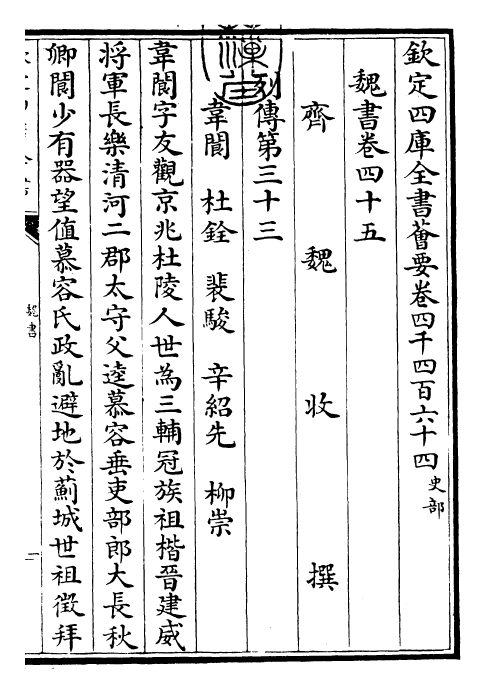 欽定四庫全書薈要卷四千四百六十四史部
魏書卷四十五
齊魏收撰
列傳第三十三
韋閬 杜銓 裴駿 辛紹先 柳崇
韋閬字友觀京兆杜陵人世為三輔冠族祖楷晉建威
將軍長樂清河二郡太守父逵慕容垂吏部郎大長秋
卿閬少有器望值慕容氏政亂避地於薊城世祖徵拜
魏書
一